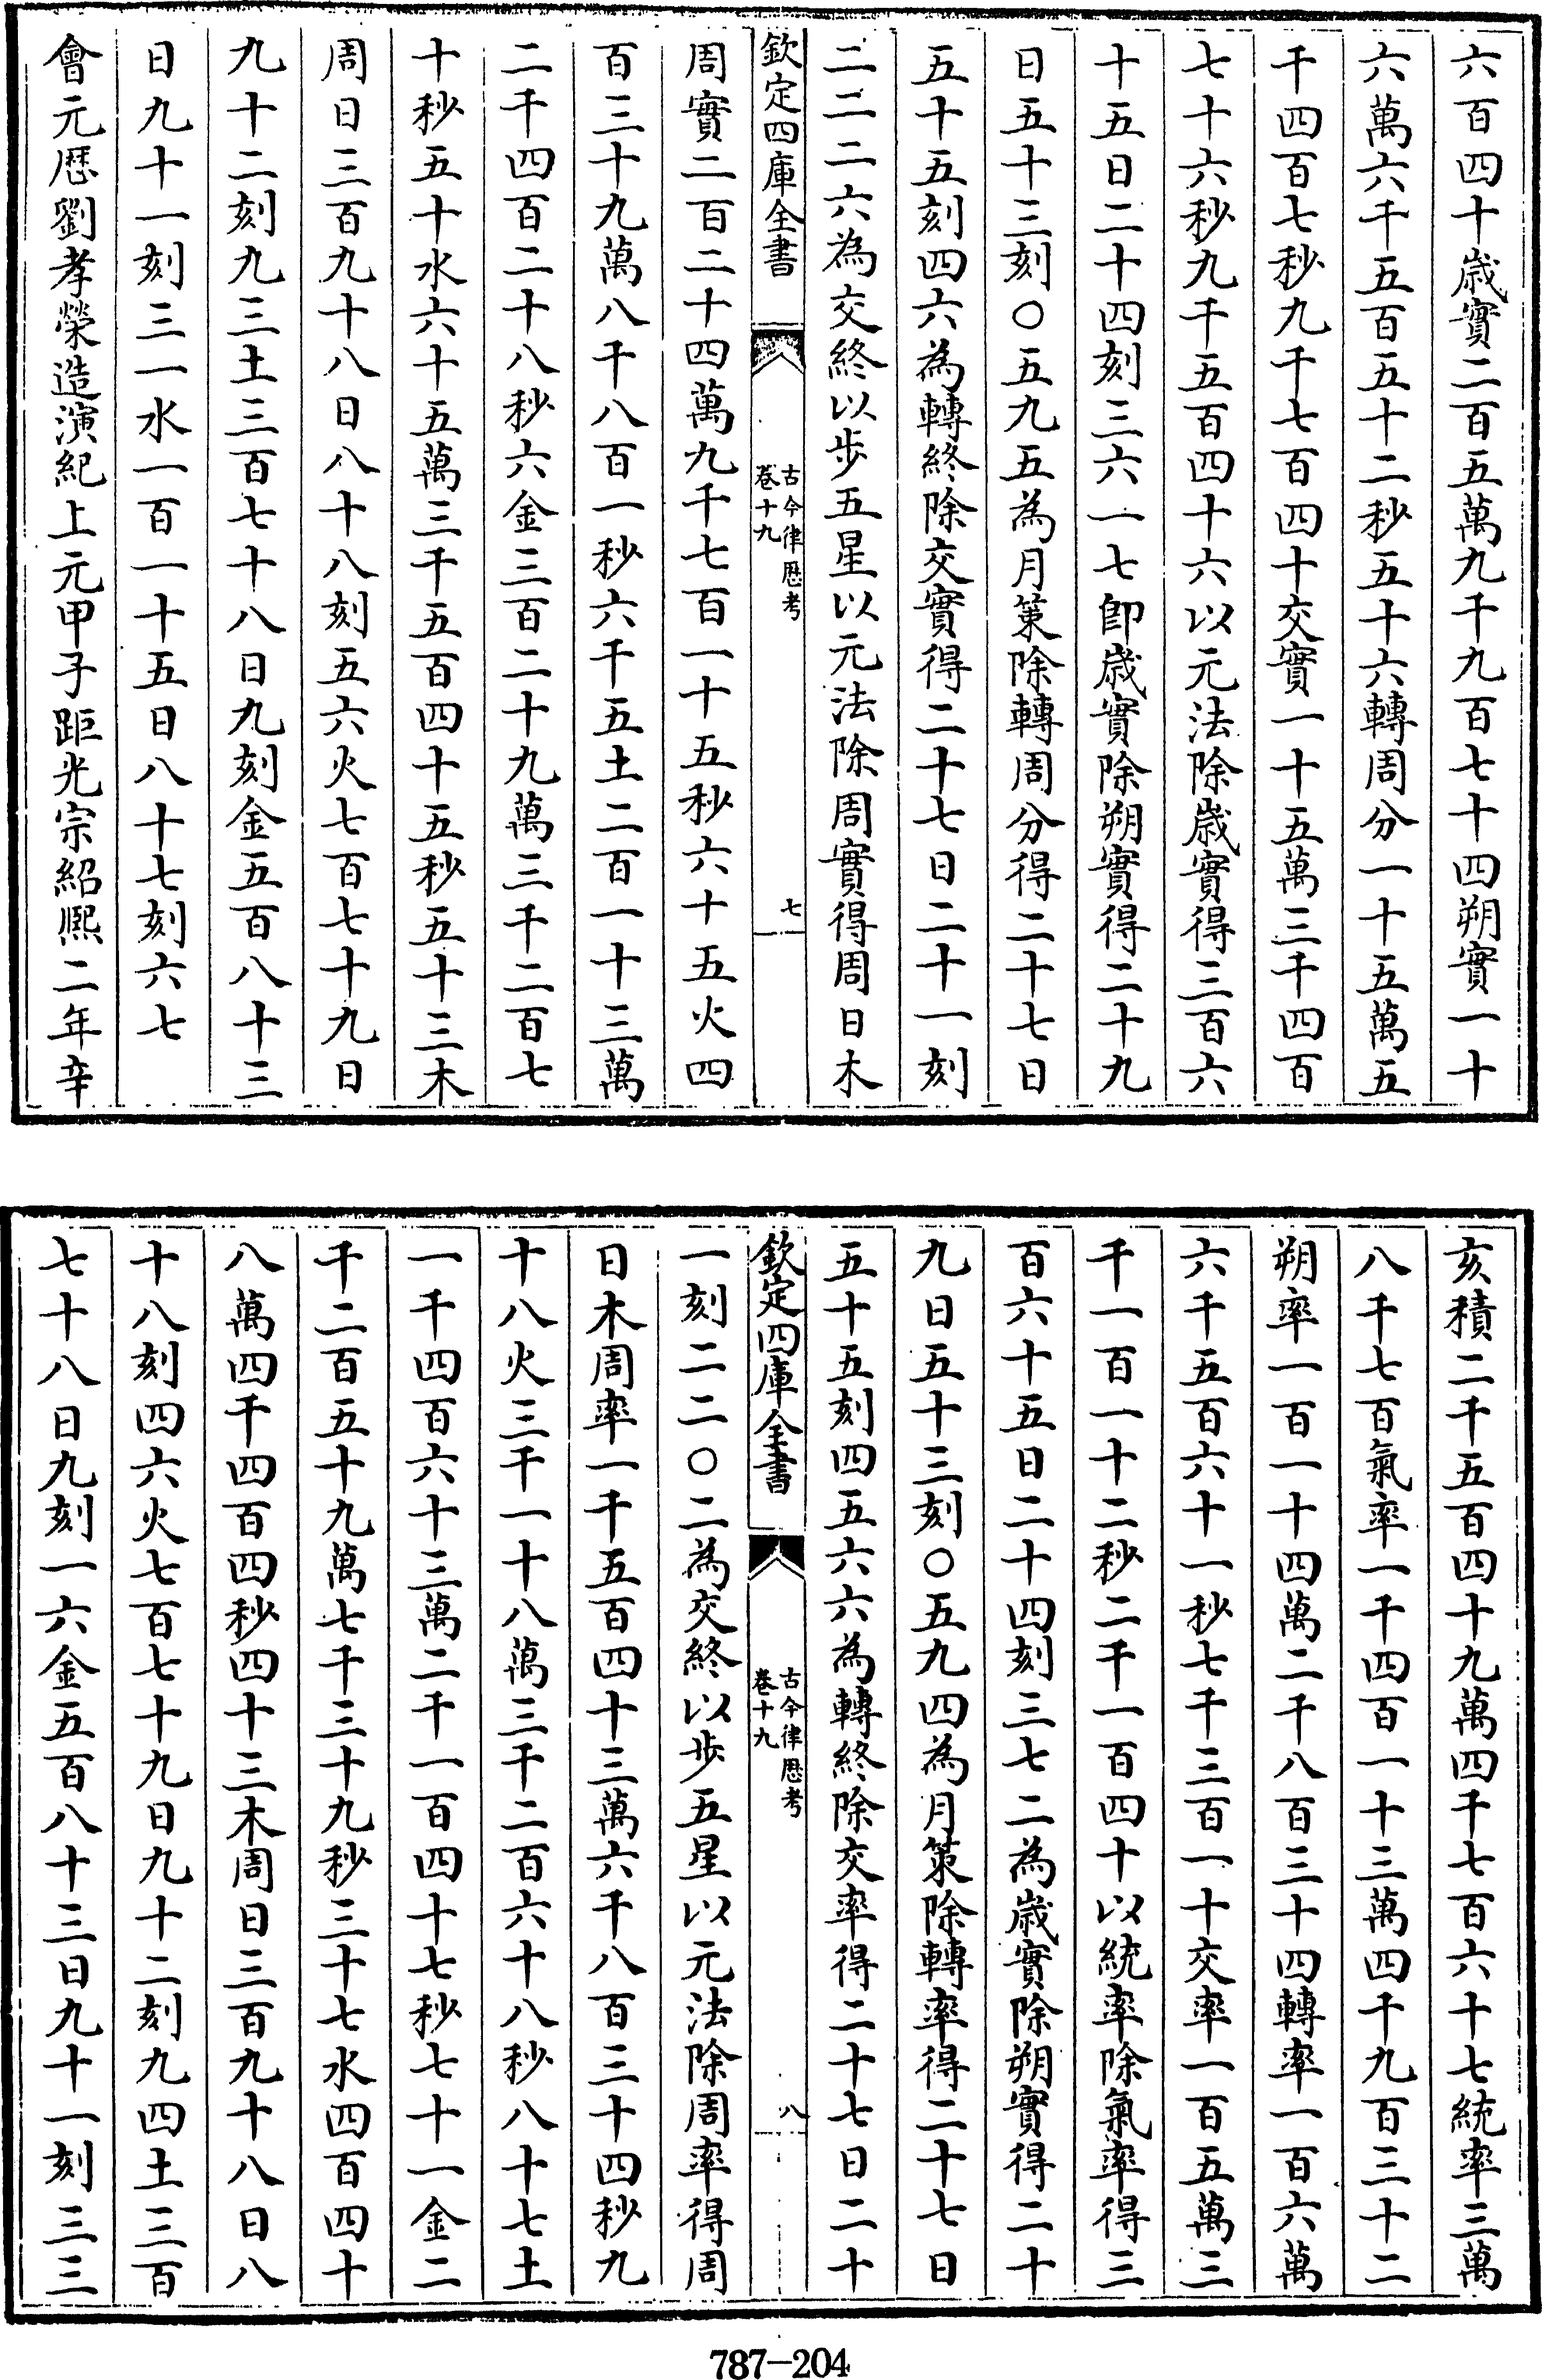 六百四十歳實二百五萬九千九百七十四朔實一十
六萬六千五百五十二秒五十六轉周分一十五萬五
千四百七秒九千七百四十交實一十五萬三千四百
七十六秒九千五百四十六以元法除歳實得三百六
十五日二十四刻三六一七即歳實除朔實得二十九
日五十三刻〇五九五為月策除轉周分得二十七日
五十五刻四六為轉終除交實得二十七日二十一刻
二二二六為交終以步五星以元法除周實得周日木
欽定四庫全書
古今律厯考
卷十九
七
周實二百二十四萬九千七百一十五秒六十五火四
百三十九萬八千八百一秒六千五土二百一十三萬
二千四百二十八秒六金三百二十九萬三千二百七
十秒五十水六十五萬三千五百四十五秒五十三木
周日三百九十八日八十八刻五六火七百七十九日
九十二刻九三土三百七十八日九刻金五百八十三
日九十一刻三一水一百一十五日八十七刻六七
會元厯劉孝榮造演紀上元甲子距光宗紹熙二年辛
亥積二千五百四十九萬四千七百六十七統率三萬
八千七百氣率一千四百一十三萬四千九百三十二
朔率一百一十四萬二千八百三十四轉率一百六萬
六千五百六十一秒七千三百一十交率一百五萬三
千一百一十二秒二千一百四十以統率除氣率得三
百六十五日二十四刻三七二為歳實除朔實得二十
九日五十三刻〇五九四為月策除轉率得二十七日
五十五刻四五六六為轉終除交率得二十七日二十
欽定四庫全書
古今律厯考
卷十九
八
一刻二二〇二為交終以步五星以元法除周率得周
日木周率一千五百四十三萬六千八百三十四秒九
十八火三千一十八萬三千二百六十八秒八十七土
一千四百六十三萬二千一百四十七秒七十一金二
千二百五十九萬七千三十九秒三十七水四百四十
八萬四千四百四秒四十三木周日三百九十八日八
十八刻四六火七百七十九日九十二刻九四土三百
七十八日九刻一六金五百八十三日九十一刻三三
787-204